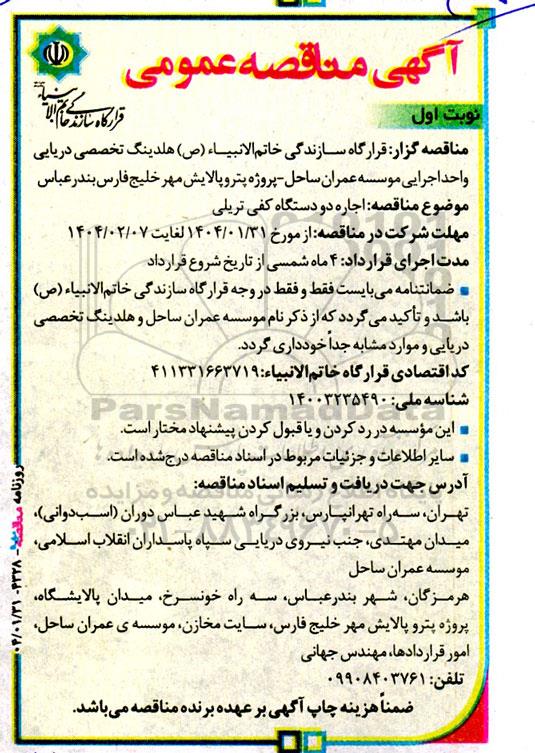 آگهی مناقصه عمومی
قرارگاه سازندگی خاتم الانبیاء
نوبت اول
مناقصه گزار: قرارگاه سازندگی خاتم‌الانبیاء (ص) هلدینگ تخصصی دریایی
واحد اجرایی موسسه عمران ساحل-پروژه پتروپالایش مهر خلیج فارس بندرعباس
موضوع مناقصه: اجاره دو دستگاه کفی تریلی
مهلت شرکت در مناقصه: از مورخ ۱۴۰۴/۰۱/۳۱ لغایت ۱۴۰۴/۰۲/۰۷
مدت اجرای قرارداد: ۴ ماه شمسی از تاریخ شروع قرارداد
ضمانتنامه می‌بایست فقط و فقط در وجه قرارگاه سازندگی خاتم‌الانبیاء (ص)
باشد و تأکید می‌گردد که از ذکر نام موسسه عمران ساحل و هلدینگ تخصصی
دریایی و موارد مشابه جداً خودداری گردد.
کد اقتصادی قرارگاه خاتم‌الانبیاء: ۴۱۱۳۳۱۶۶۳۷۱۹
شناسه ملی: ۱۴۰۰۳۲۳۵۴۹۰
ParsNamadData
این مؤسسه در رد کردن و یا قبول کردن پیشنهاد مختار است.
سایر اطلاعات و جزئیات مربوط در اسناد مناقصه درج شده است.
آدرس جهت دریافت و تسلیم اسناد مناقصه:
تهران، سه‌راه تهرانپارس، بزرگراه شهید عباس دوران (اسب‌دوانی)،
میدان مهتدی، جنب نیروی دریایی سپاه پاسداران انقلاب اسلامی،
موسسه عمران ساحل
هرمزگان، شهر بندرعباس، سه راه خونسرخ، میدان پالایشگاه،
پروژه پترو پالایش مهر خلیج فارس، سایت مخازن، موسسه ی عمران ساحل،
امور قراردادها، مهندس جهانی
تلفن: ۰۹۹۰۸۴۰۳۷۶۱
ضمناً هزینه چاپ آگهی بر عهده برنده مناقصه می‌باشد.
روزنامه مناقصه - ۴۳۲۸ - ۰۴/۰۱/۳۱